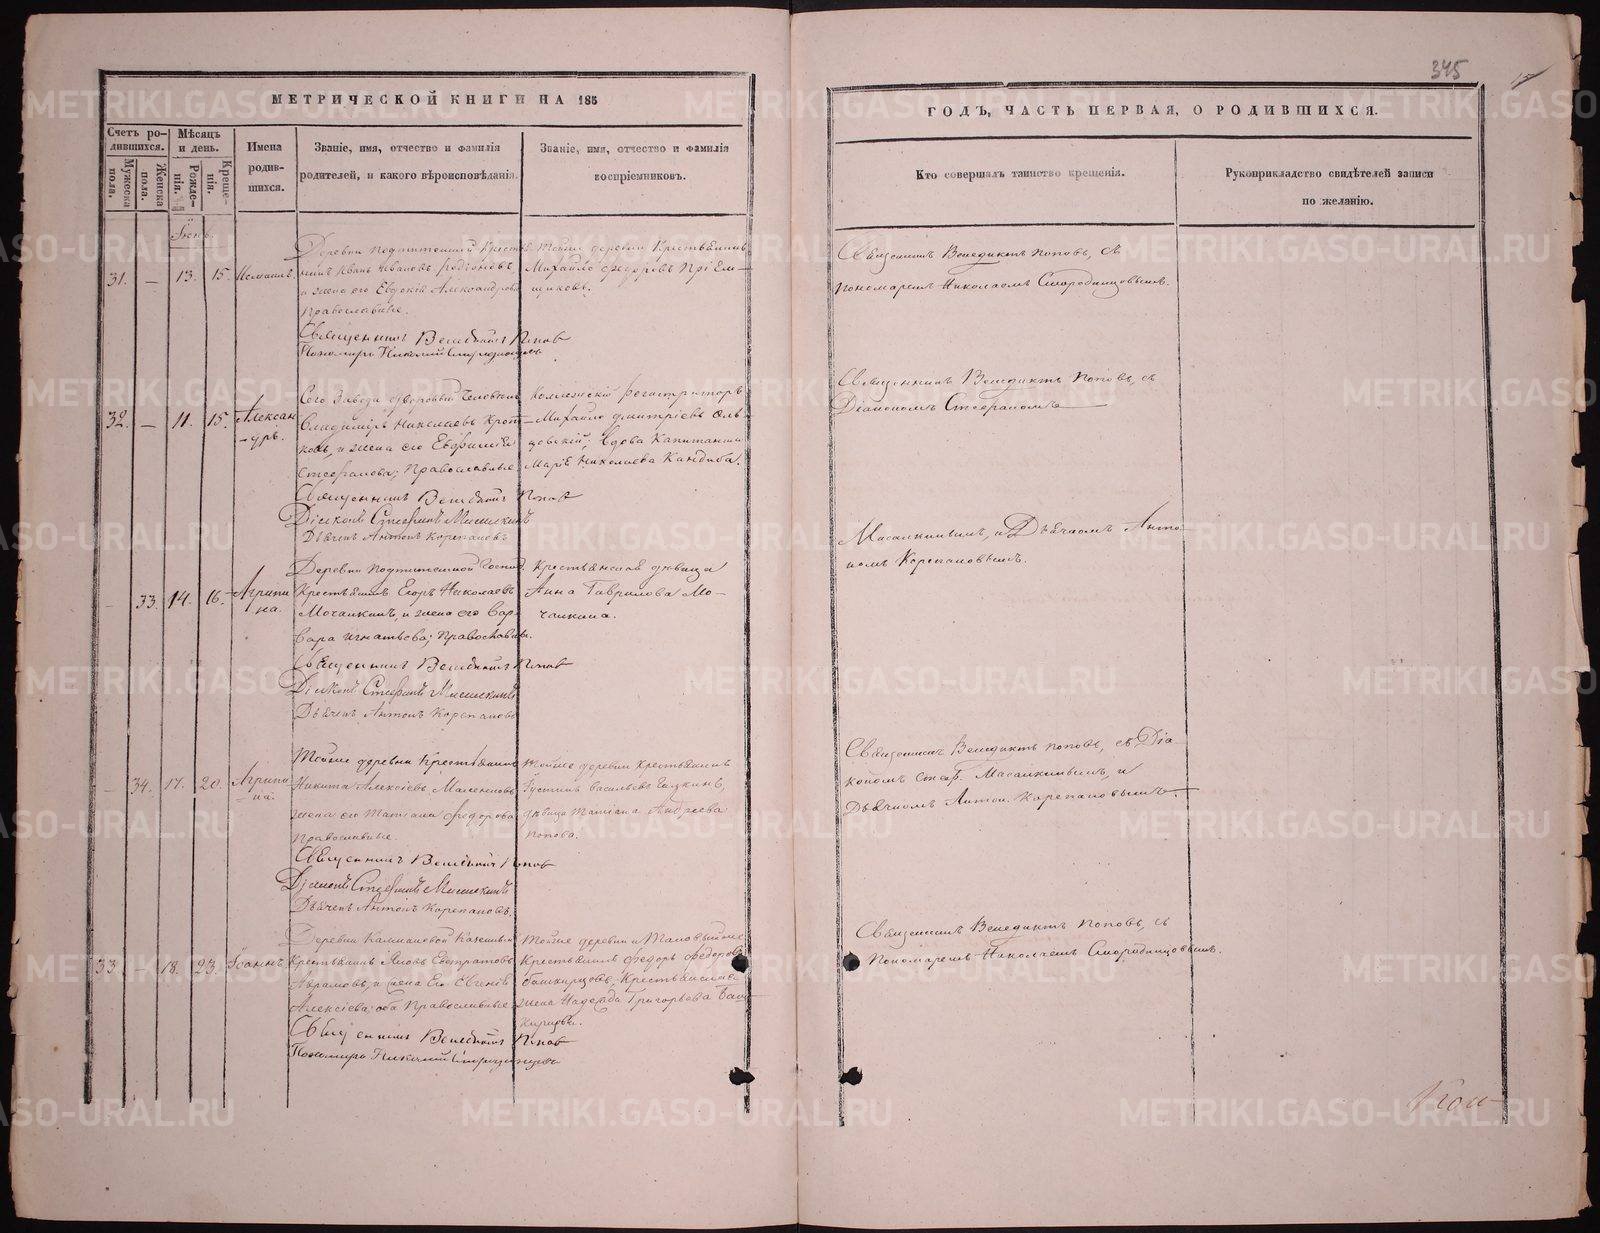 МЕТРИЧЕСКОЙ КНИГИ НА 185
Счетъ ро-
дившихся.
Мужеска пола.
Женска пола.
Мѣсяцъ и день.
Рожде-
нія.
Креще-
нія.
Имена
родив-
шихся.
Званіе, имя, отчество и фамилія
родителей, и какого вѣроисповѣданія.
Званіе, имя, отчество и фамилія
воспріемниковъ.
31. — 13. 15.
Деревни
и жена его Евдокія Александрова
Православные.
Тойже деревни Крестьянинъ
Михайло Федоровъ Пріем-
щиковъ.
Священникъ Венедиктъ Поповъ
Пономарь Николай Смородинцовъ
32. — 11. 15. Алексан-
дръ.
Сего Завода дворовый человѣкъ
Владиміръ Николаевъ
и жена его Евфимія
Стефанова; Православные
Коллежскій Регистраторъ
Михайло Дмитріевъ
Вдова Капитанша
Марія Николаева Кандиба.
Священникъ Венедиктъ Поповъ
Діаконъ Стефанъ Масалкинъ
Дьячекъ Антонъ Корепановъ
— 33. 14. 16. Агрипи-
на.
Деревни
Крестьянинъ Егоръ Николаевъ
Мочалкинъ, и жена его Вар-
вара Игнатьева; Православные.
Крестьянская дѣвица
Анна Гаврилова Мо-
чалкина.
Священникъ Венедиктъ Поповъ
Діаконъ Стефанъ Масалкинъ
Дьячекъ Антонъ Корепановъ
— 34. 17. 20. Агрипи-
на.
Тойже деревни Крестьянинъ
Никита Алексѣевъ
жена его Татіана Федорова
Православные.
Тойже деревни Крестьянинъ
Іустинъ Васильевъ
дѣвица Татіана Андреева
Попова.
Священникъ Венедиктъ Поповъ
Діаконъ Стефанъ Масалкинъ
Дьячекъ Антонъ Корепановъ.
33. — 18. 23. Іоаннъ
Деревни
Крестьянинъ Яковъ Евстратовъ
Аврамовъ, и жена Его Евгенія
Алексѣева; оба Православные
Тойже деревни
Крестьянинъ Федоръ Федоровъ
Башкирцовъ, Крестьянская
жена Надежда Григорьева Баш-
кирцова.
Священникъ Венедиктъ Поповъ
Пономарь Николай Смородинцовъ
345
ГОДЪ, ЧАСТЬ ПЕРВАЯ, О РОДИВШИХСЯ.
Кто совершалъ таинство крещенія.
Рукоприкладство свидѣтелей записи
по желанію.
Священникъ Венедиктъ Поповъ, съ
пономаремъ Николаемъ Смородинцовымъ.
Священникъ Венедиктъ Поповъ, съ
Діакономъ Стефаномъ
Масалкинымъ, и Дьячкомъ Анто-
номъ Корепановымъ.
Священникъ Венедиктъ Поповъ, съ Діа-
кономъ Стеф. Масалкинымъ, и
Дьячкомъ Антон. Корепановымъ.
Священникъ Венедиктъ Поповъ, съ
Пономаремъ Николаемъ Смородинцовымъ.
METRIKI.GASO-URAL.RU